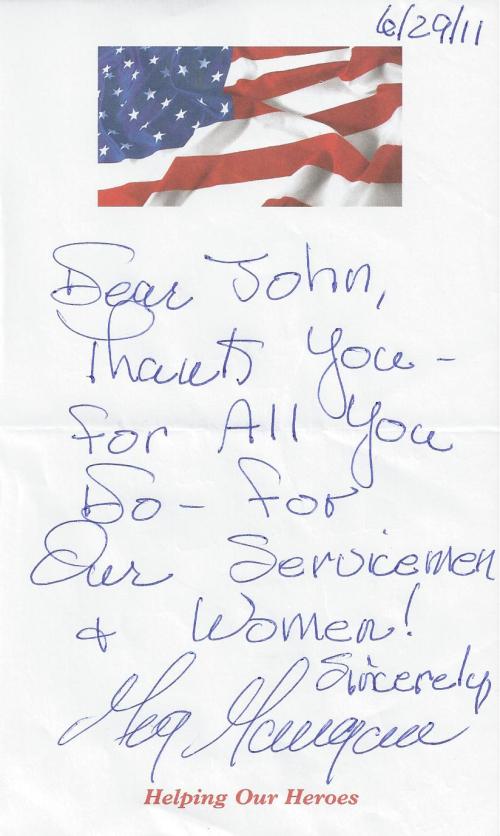 6/29/11
Dear John,
Thank You -
for All You
Do - for
Our Servicemen
& Women!
Sincerely
Helping Our Heroes